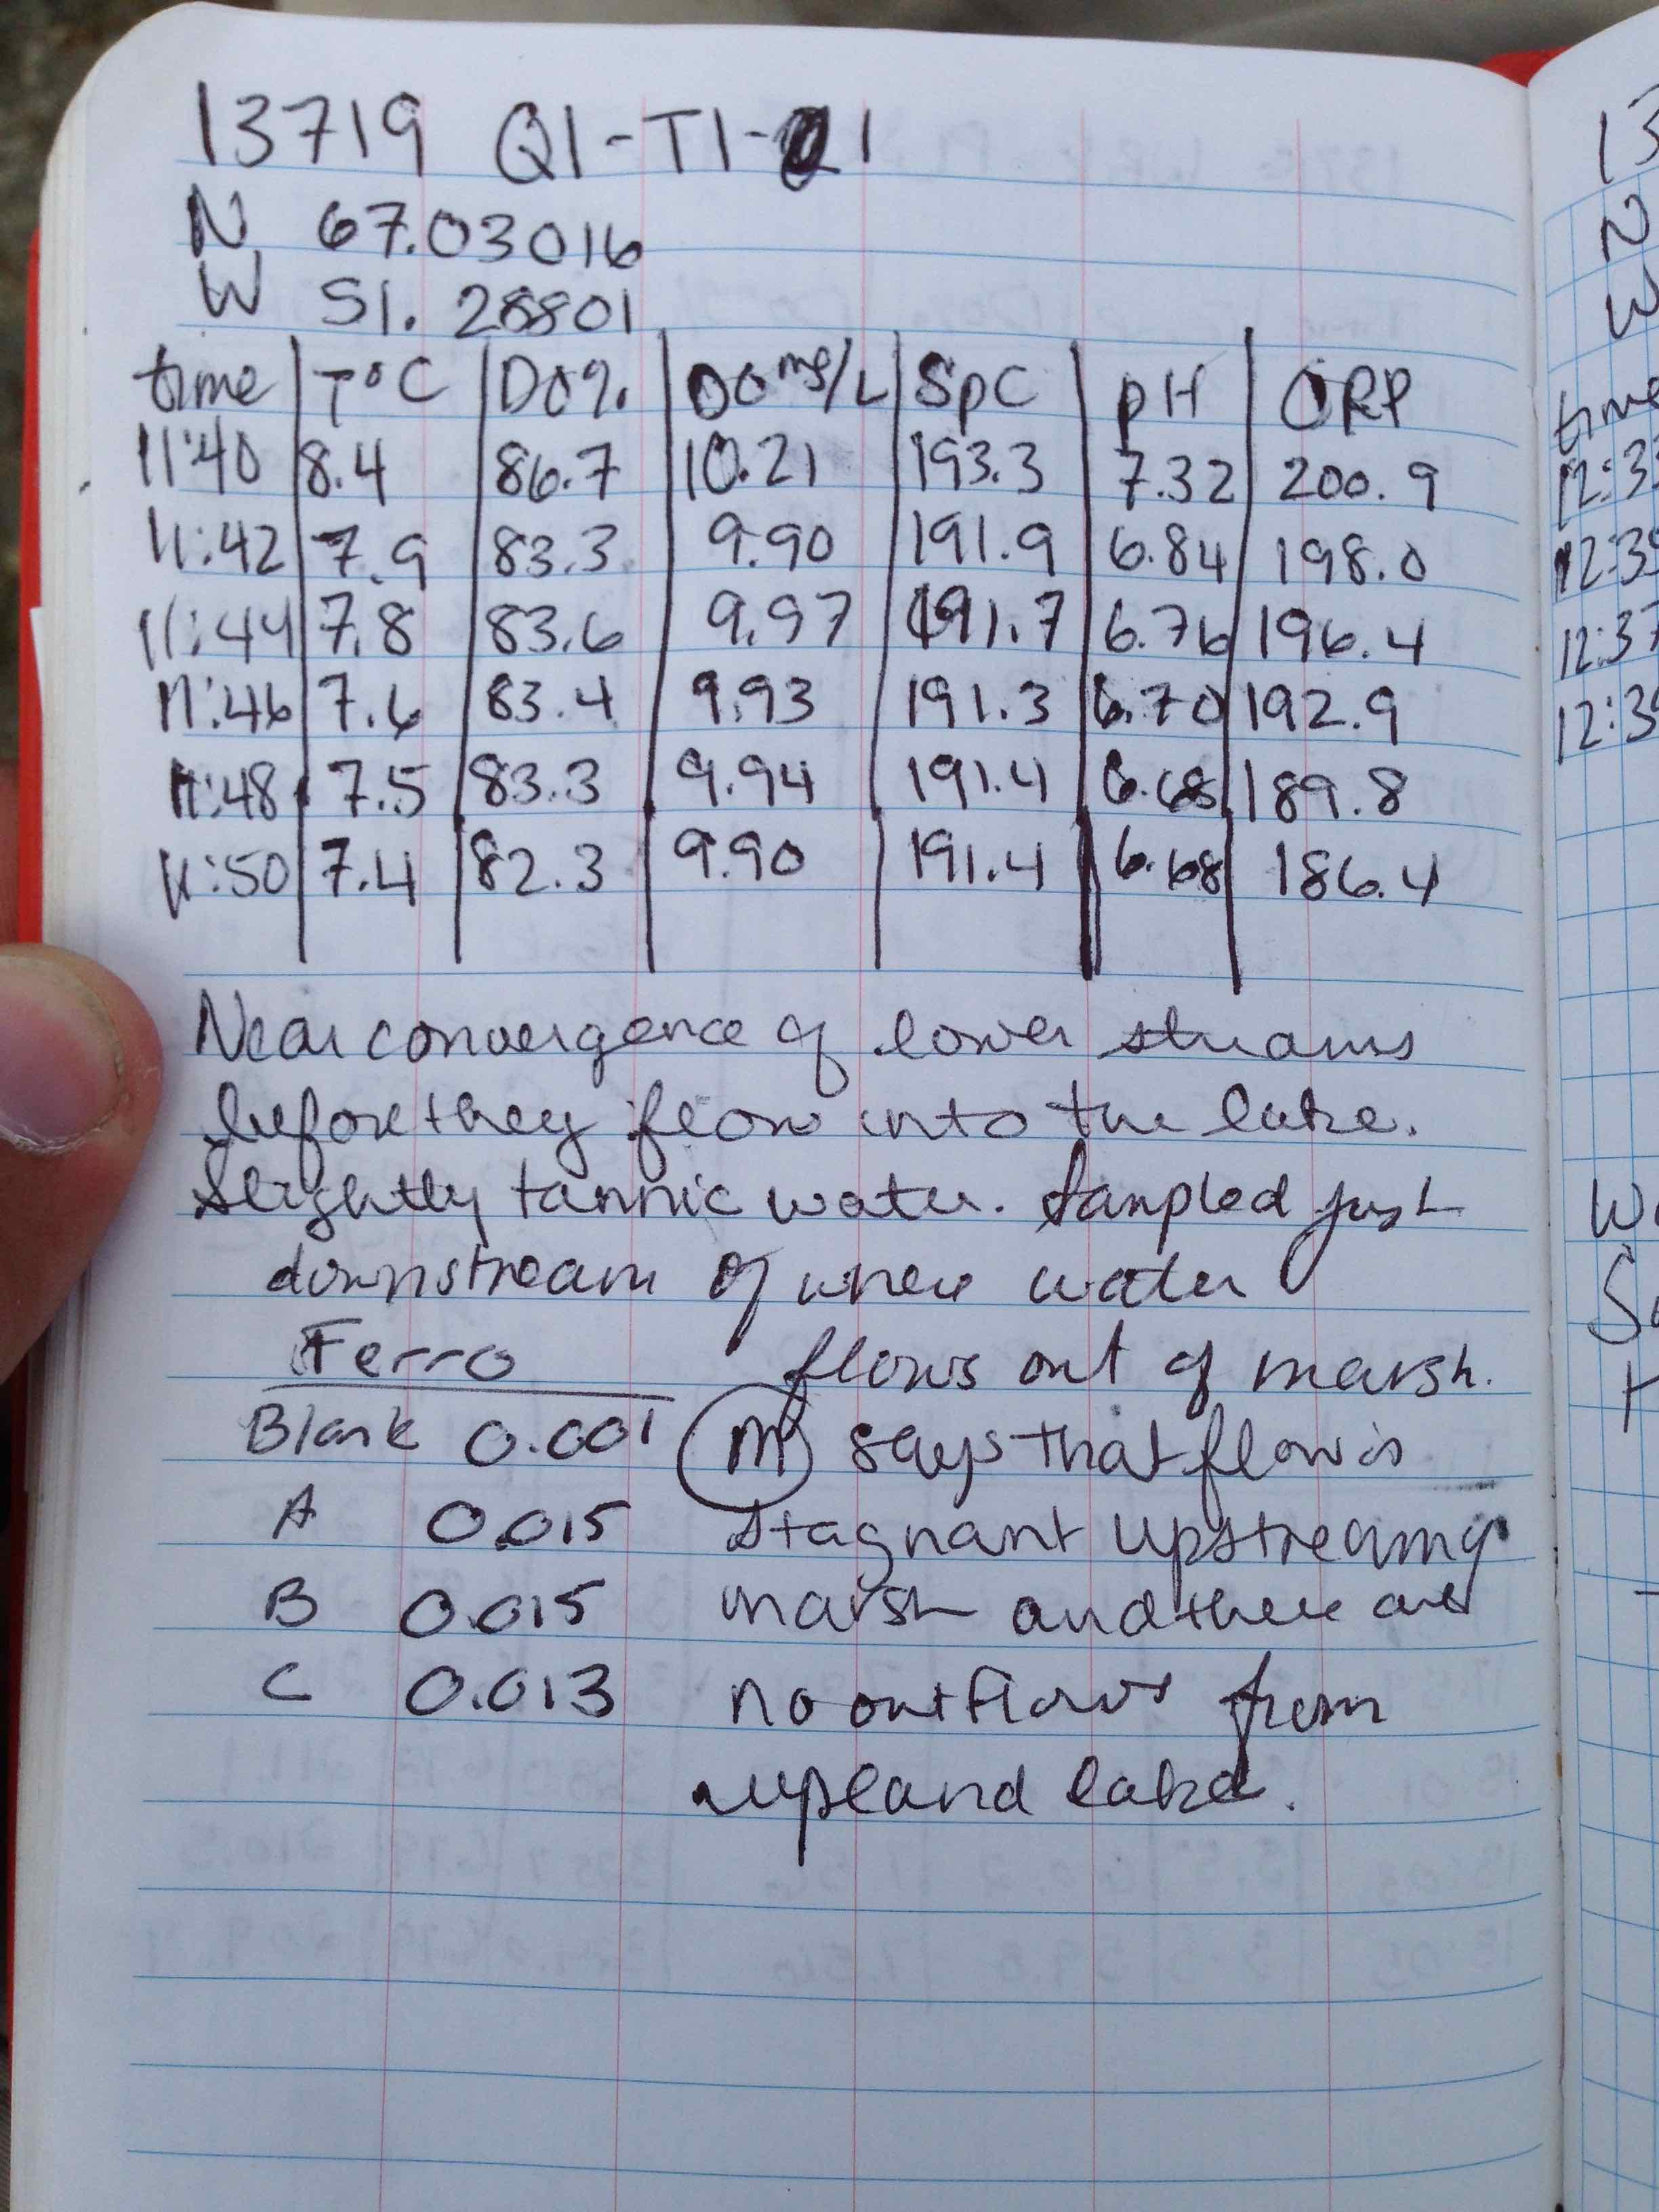 13719 Q1-T1-1
N 67.03016
W 51.28801
time T°C DO% DO mg/L SpC pH ORP
11:40 8.4 86.7 10.21 193.3 7.32 200.9
11:42 7.9 83.3 9.90 191.9 6.84 198.0
11:44 7.8 83.6 9.97 191.7 6.76 196.4
11:46 7.6 83.4 9.93 191.3 6.70 192.9
11:48 7.5 83.3 9.94 191.4 6.68 189.8
11:50 7.4 82.3 9.90 191.4 6.68 186.4
Near convergence of lower streams
before they flow into the lake.
Slightly tannic water. Sampled just
downstream of where water
flows out of marsh.
Ferro
Blank 0.001
A 0.015
B 0.015
C 0.013
M says that flow is
stagnant upstream of
marsh and there are
no outflows from
upland lake.
13
N
W
time
12:3
12:3
12:37
12:3